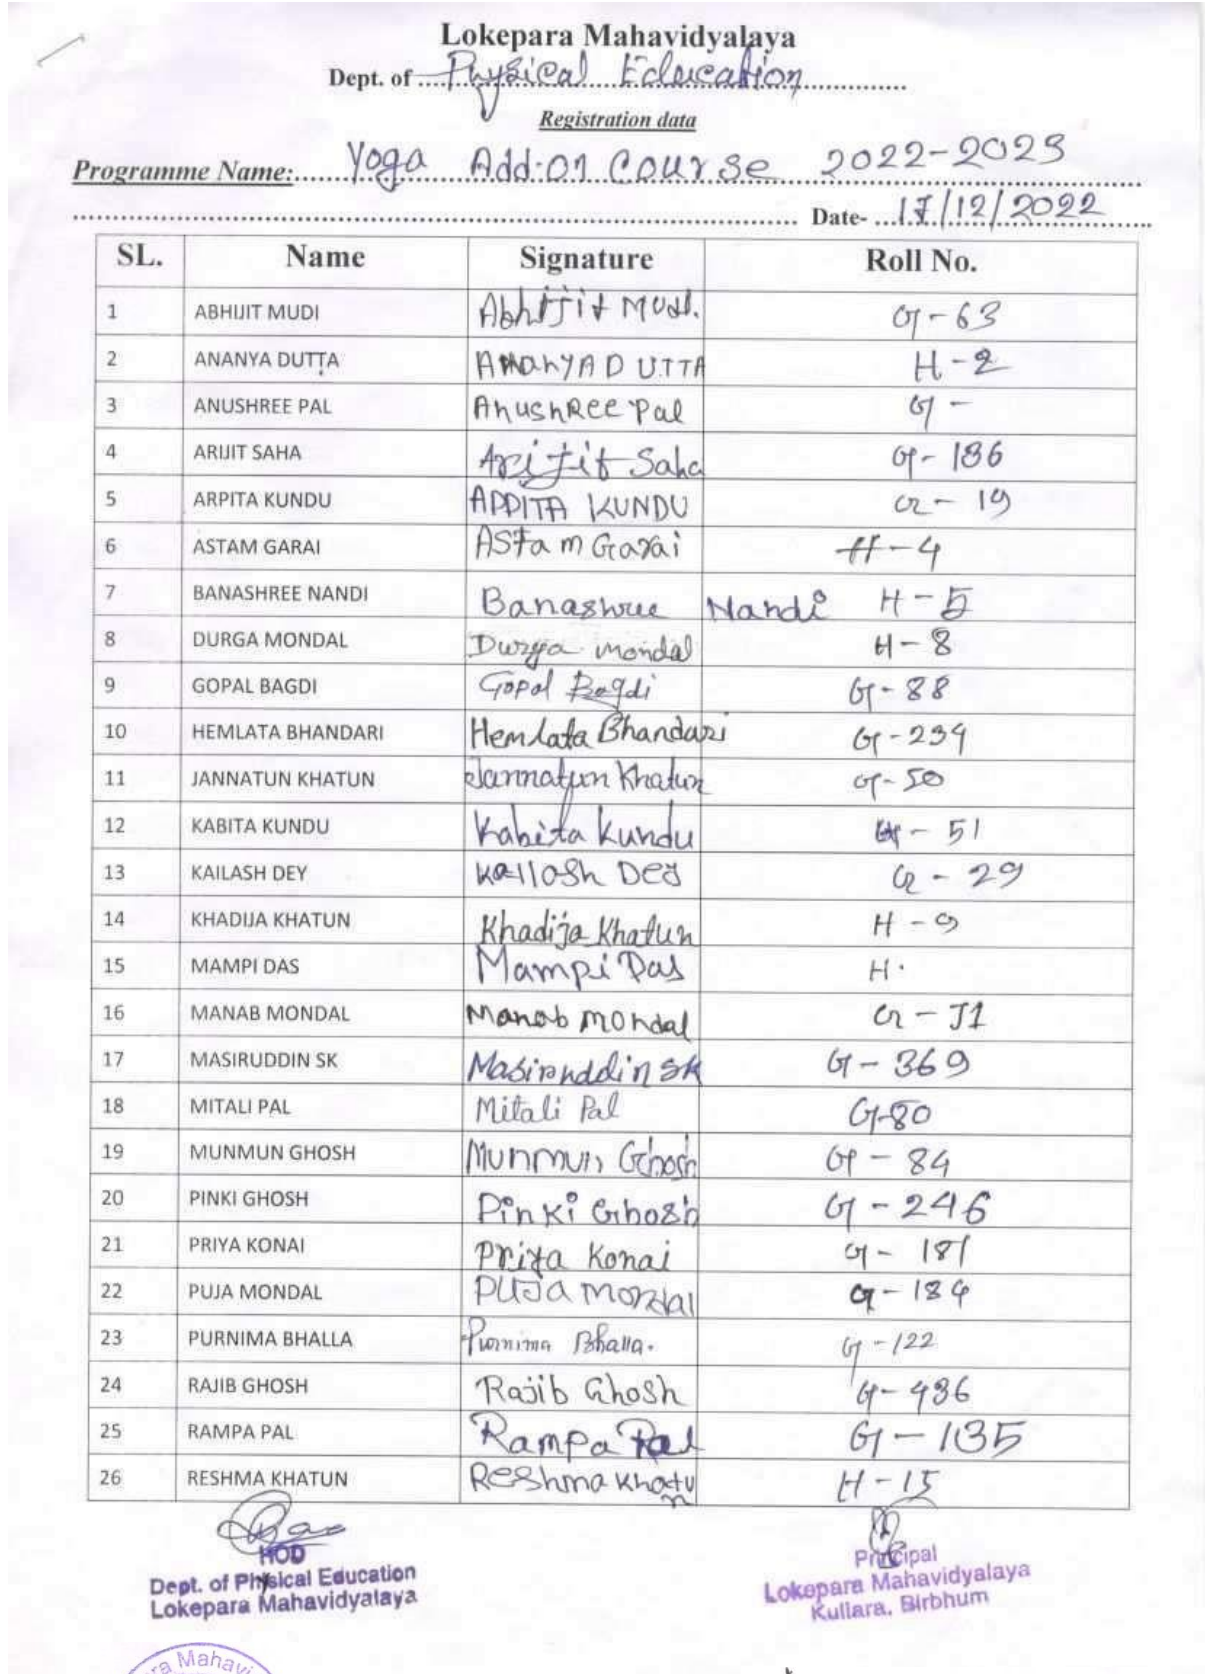 Lokepara Mahavidyalaya
Dept. of ....Physical Education...............
Registration data
Programme Name:......Yoga Add-on Course 2022-2023
Date- ...17/12/2022
SL. Name Signature Roll No.
1 ABHIJIT MUDI Abhijit Mudi. G-63
2 ANANYA DUTTA ANANYA DUTTA H-2
3 ANUSHREE PAL AnushRee Pal G -
4 ARIJIT SAHA Arijit Saha G-186
5 ARPITA KUNDU ARPITA KUNDU G - 19
6 ASTAM GARAI Astam Garai H-4
7 BANASHREE NANDI Banashree Nandi H-5
8 DURGA MONDAL Durga mondal H-8
9 GOPAL BAGDI Gopal Bagdi G-88
10 HEMLATA BHANDARI Hemlata Bhandari G-239
11 JANNATUN KHATUN Jannatun Khatun G-50
12 KABITA KUNDU Kabita Kundu G - 51
13 KAILASH DEY Kailash Dey G - 29
14 KHADIJA KHATUN Khadija Khatun H - 9
15 MAMPI DAS Mampi Das H.
16 MANAB MONDAL Manab mondal G - 71
17 MASIRUDDIN SK Masiruddin SK G-369
18 MITALI PAL Mitali Pal G-80
19 MUNMUN GHOSH Munmun Ghosh G - 84
20 PINKI GHOSH Pinki Ghosh G - 246
21 PRIYA KONAI Priya Konai G - 181
22 PUJA MONDAL PUJA Mondal G-184
23 PURNIMA BHALLA Purnima Bhalla. G-122
24 RAJIB GHOSH Rajib Ghosh G-486
25 RAMPA PAL Rampa Pal G-135
26 RESHMA KHATUN Reshma Khatun H-15
HOD
Dept. of Physical Education
Lokepara Mahavidyalaya
Principal
Lokepara Mahavidyalaya
Kullara, Birbhum